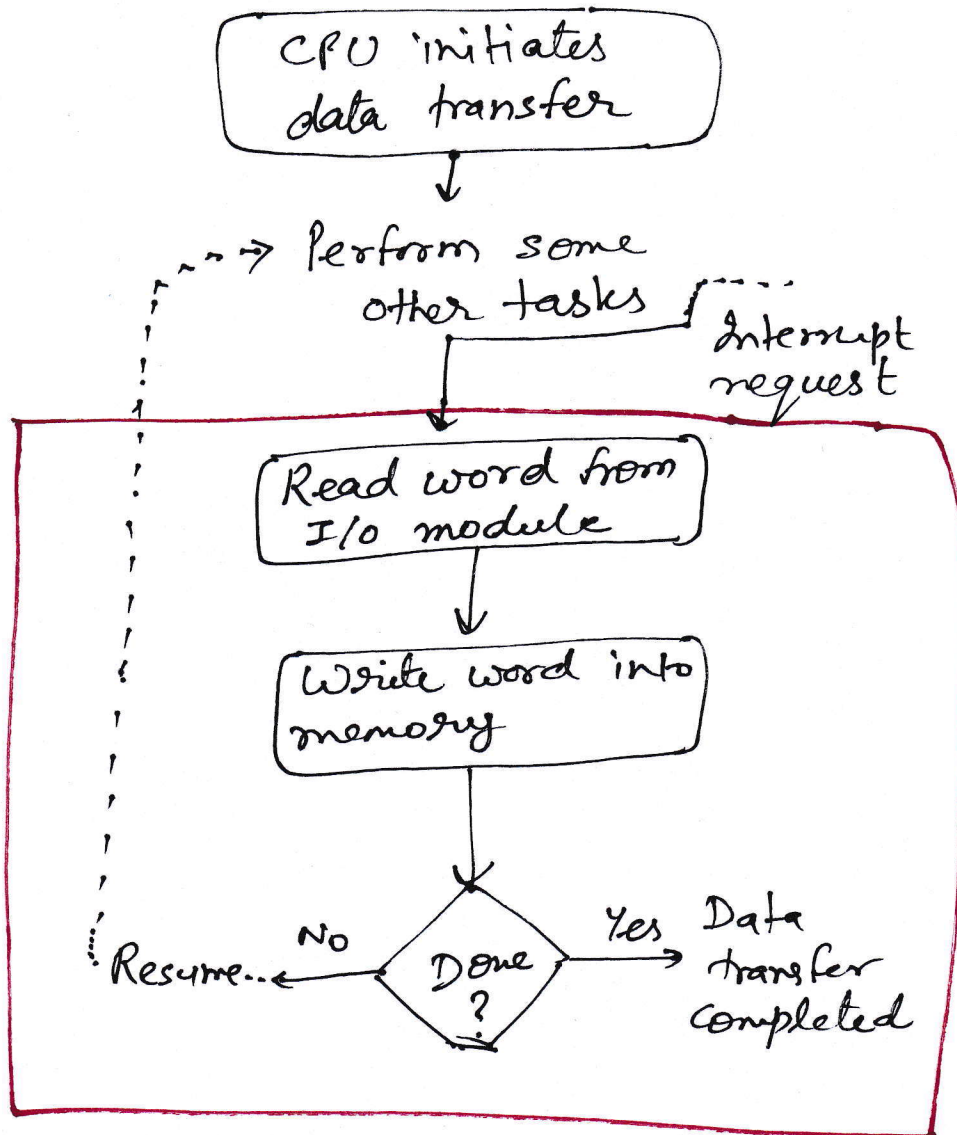 CPU initiates
data transfer
Perform some
other tasks
Interrupt
request
Read word from
I/O module
Write word into
memory
Done
?
No
Resume..
Yes
Data
transfer
completed